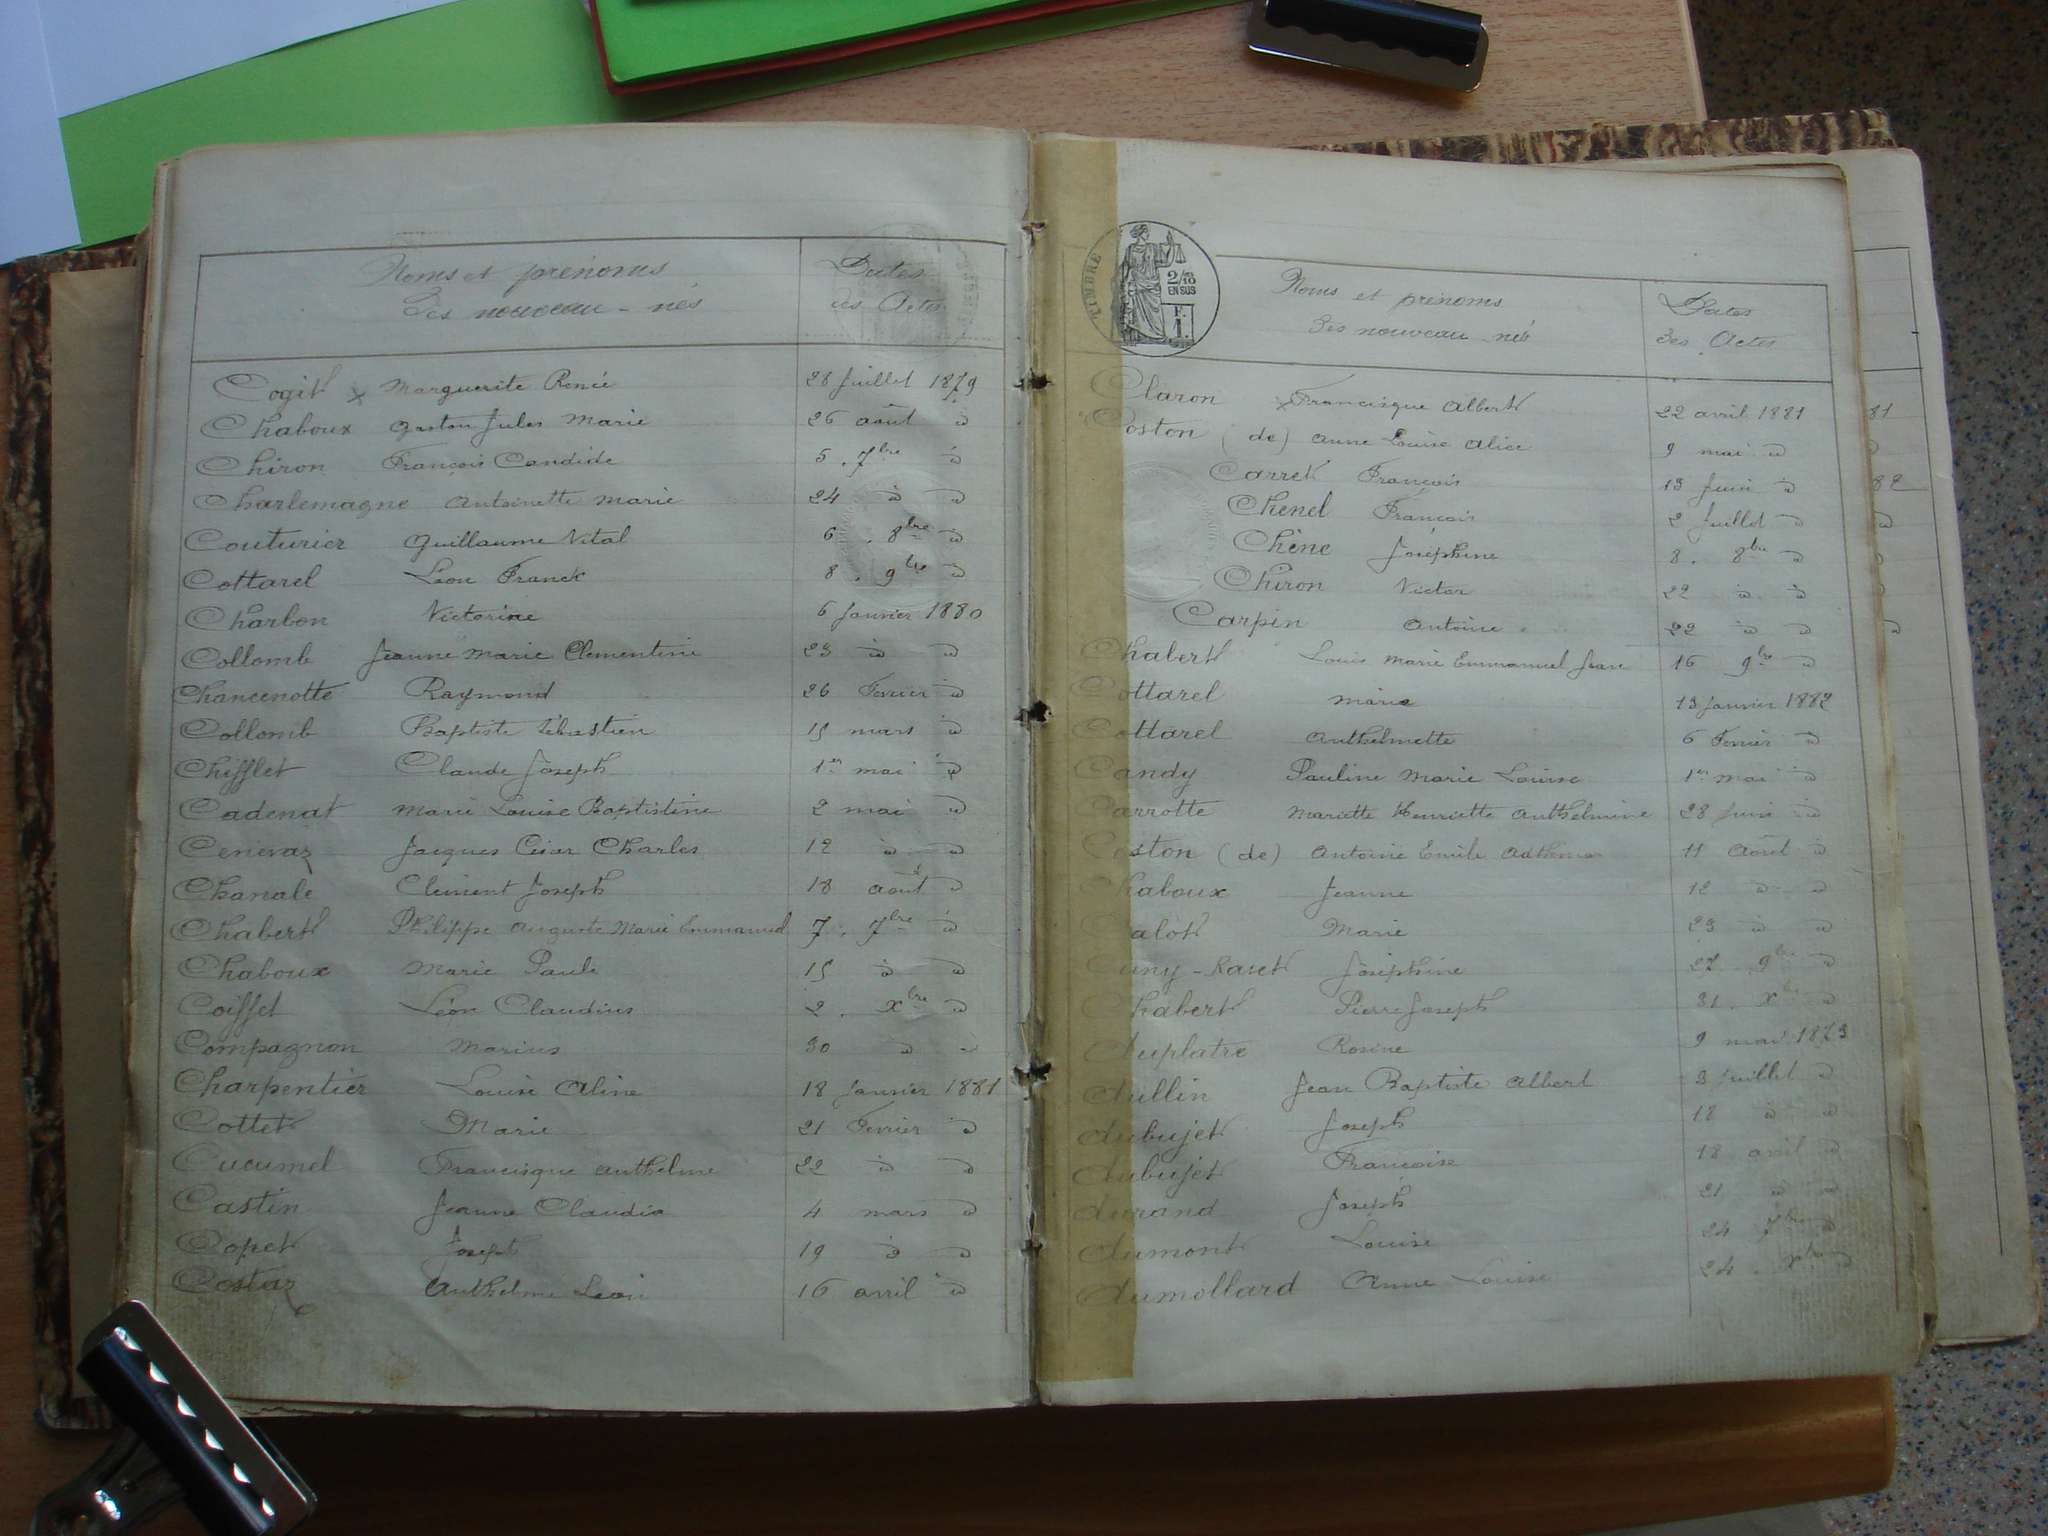 Noms et prénoms
Des nouveau-nés
Dates
des Actes
Cogit x Marguerite Renée 28 Juillet 1879
Chaboux Gaston Jules Marie 26 août d
Chiron François Candide 5. 7bre d
Charlemagne Antoinette Marie 24 d d
Couturier Guillaume Vital 6. 8bre d
Cottarel Léon Franck 8. 9bre d
Charbon Victorine 6 Janvier 1880
Collomb Jeanne Marie Clementine 23 d d
Chancenotte Raymond 26 Fevrier d
Collomb Baptiste Sébastien 15 mars d
Chifflet Claude Joseph 1er mai d
Cadenat Marie Louise Baptistine 2 mai d
Cenevaz Jacques César Charles 12 d d
Chanale Clément Joseph 18 août d
Chabert Philippe Auguste Marie Emmanuel 7. 7bre d
Chaboux Marie Paule 15 d d
Coiffet Léon Claudius 2. Xbre d
Compagnon Marius 30 d d
Charpentier Louise Aline 18 Janvier 1881
Cottet Marie 21 Fevrier d
Cucumel Francisque Anthelme 22 d d
Castin Jeanne Claudia 4 mars d
Copet Joseph 19 d d
Costaz Anthelme Léon 16 avril d
TIMBRE
2/10
EN SUS
F.
1.
Noms et prénoms
Des nouveau-nés
Dates
Des Actes
Claron x Francisque Albert 22 avril 1881
Coston (de) Anne Louise Alice 9 mai d
Carret François 13 Juin d
Chenel François 2 Juillet d
Chêne Joséphine 8. 8bre d
Chiron Victor 22 d d
Carpin Antoine 22 d d
Chabert Louis Marie Emmanuel Jean 16 9bre d
Cottarel Marie 13 Janvier 1882
Cottarel Anthelmette 6 Fevrier d
Candy Pauline Marie Louise 1er mai d
Carrotte Mariette Henriette Anthelmine 28 Juin d
Coston (de) Antoine Emile 11 Août d
Chaboux Jeanne 12 d d
Calot Marie 23 d d
Cuny- Joséphine 27. 9bre d
Chabert Pierre Joseph 31. Xbre d
Duplatre Rosine 9 mai 1873
Dullin Jean Baptiste Albert 3 Juillet d
Dubujet Joseph 18 d d
Dubujet Françoise 18 avril d
Durand Joseph 21 d d
Dumont Louise 24 7bre d
Dumollard Anne Louise 24. Xbre d
81
d
82
d
d